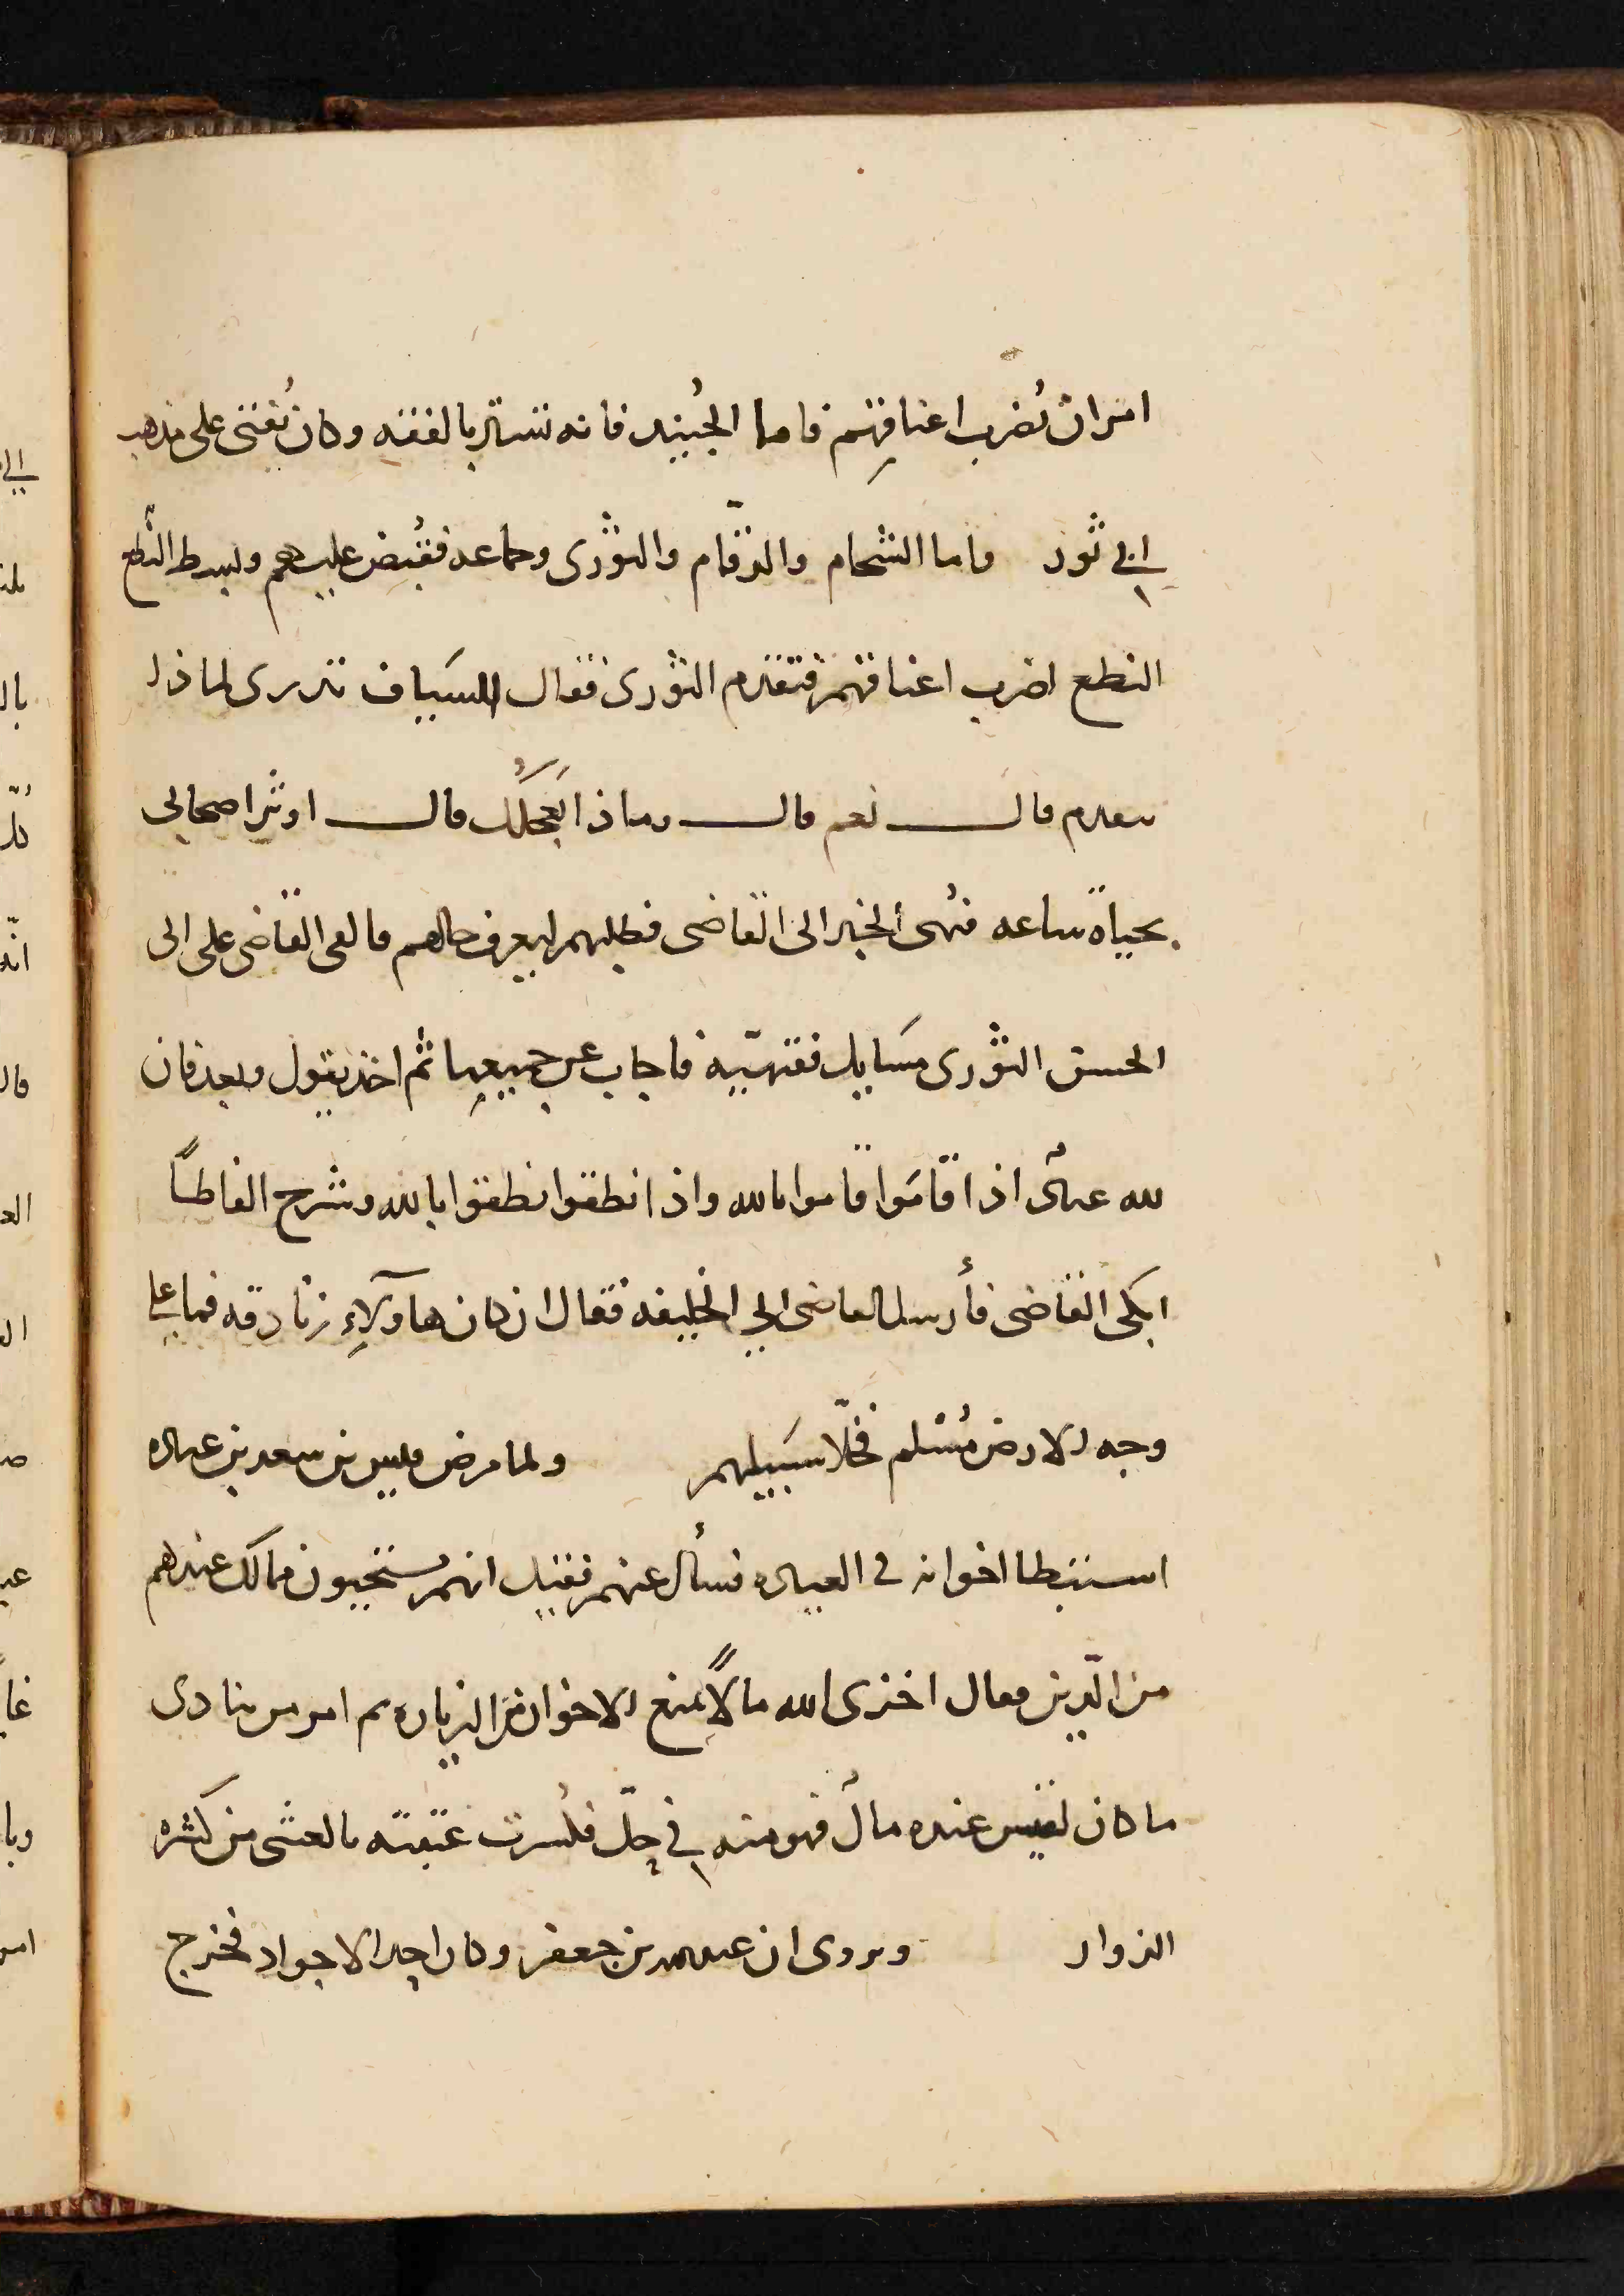 امر ان تُضرب اعناقهم فاما الجُنيد فانه تستر بالفقه وكان يُفتى على مذهب
ابي ثور واما الشحام والرقّام والثورى وجماعه فقُبض عليهم وبسط النطع
النطع اضرب اعناقهم فتقدم الثورى فقال السياف تدرى لماذا
تتقدم قال نعم قال وماذا يُعجلك قال اوثر اصحابى
بحياة ساعه فنُهى الخبر الى القاضى فطلبهم ليعرف حالهم فالقى القاضى على ابى
الحسن الثورى مسايل فقهيّه فاجاب عن جميعها ثم اخذ يقول وبعد فان
لله عبادًا اذا قاموا قاموا بالله واذا نطقوا نطقوا بالله وشرح الفاظًا
ابكى القاضى فأرسل القاضى الي الخليفه فقال ان كان هاؤلآءِ زنادقه فما على
وجه الارض مُسلم فخلّا سبيلهم ولما مرض قيس بن سعد بن عباده
استبطا اخوانه فى العياده فسأل عنهم فقيل انهم يستحيون مما لك عندهم
من الدّين فقال اخزى الله مالًا يمنع الاخوان من الزياره ثم امر من ينادى
ما كان لقيس عنده مالٌ فهو منه في حلّ فكُسرت عتبته بالعشى من كثره
الزوار ويروى ان عبدالله بن جعفر وكان احد الاجواد فخرج